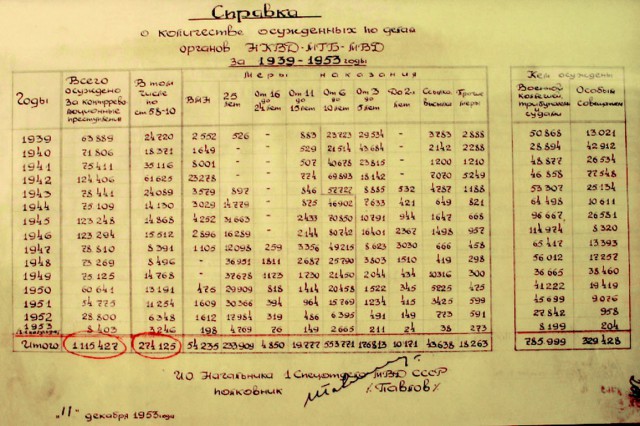 Справка
о количестве осужденных по делам
органов НКВД-МГБ-МВД
За 1939-1953 годы
Годы Всего осуждено За контрреволюционные преступления В том числе по ст 58-10 Меры наказания Кем осуждены
ВМН 25 лет От 16 до 24 лет От 11 до 15 лет От 6 до 10 лет От 3 до 5 лет До 2х лет Ссылка высылка Прочие меры Военной Коллегией, трибуналами и судами Особым Совещанием
1939 63889 24720 2552 526 - 883 23723 29534 - 3783 2888 50868 13021
1940 71806 18371 1649 - - 529 21514 43684 - 2142 2288 28894 42912
1941 75411 35116 8001 - - 507 40678 23815 - 1200 1210 48877 26534
1942 124406 61625 23278 - - 774 69893 18142 - 7070 5249 46858 77548
1943 78441 24089 3579 897 - 846 57727 8885 532 4787 1188 53307 25134
1944 75109 14130 3029 14779 - 875 46902 7633 421 649 821 64498 10611
1945 123248 14868 4252 31663 - 2433 70850 10791 944 1647 668 96667 26581
1946 123294 15512 2896 16289 - 2144 80742 16401 2367 1498 957 114974 8320
1947 78810 8391 1105 12098 259 3356 49215 8623 3030 666 458 65417 13393
1948 73269 8496 - 36951 1811 2687 25790 3803 1510 419 298 56012 17257
1949 75125 14768 - 37678 1173 1730 21450 2044 434 10316 300 36665 38460
1950 60641 13191 475 29909 818 1414 20458 1522 345 5825 475 41222 19419
1951 54775 11254 1609 30366 394 964 15769 1234 415 3425 599 45699 9076
1952 28800 6348 1612 17984 319 486 6395 491 149 773 591 27842 958
1953 8403 3246 198 4769 76 149 2665 211 24 38 273 8199 204
Итого 1115427 274125 54235 233909 4850 19777 553771 176813 10171 43638 18263 785999 329428
ИО Начальника 1 Спецотдела МВД СССР
полковник /Павлов/
"11" декабря 1953 года